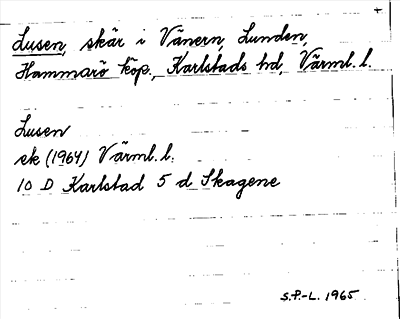 Lusen, skär i Vänern, Lunden,
Hammarö köp., Karlstads hd, Värml. l.
Lusen
ek (1964) Värml. l.
10 D Karlstad 5 d Skagene
S.P.-L. 1965